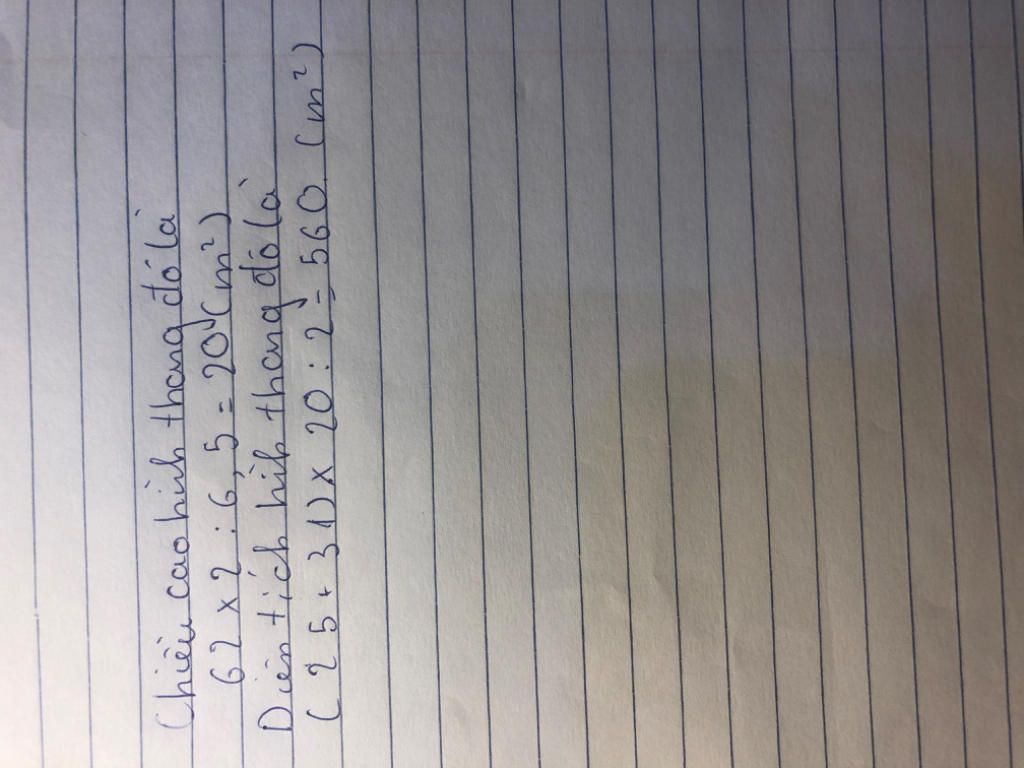 Chiều cao hình thang đó là
62 x 2 : 6,5 = 20 (m²)
Diện tích hình thang đó là
(25 + 31) x 20 : 2 = 560 (m²)